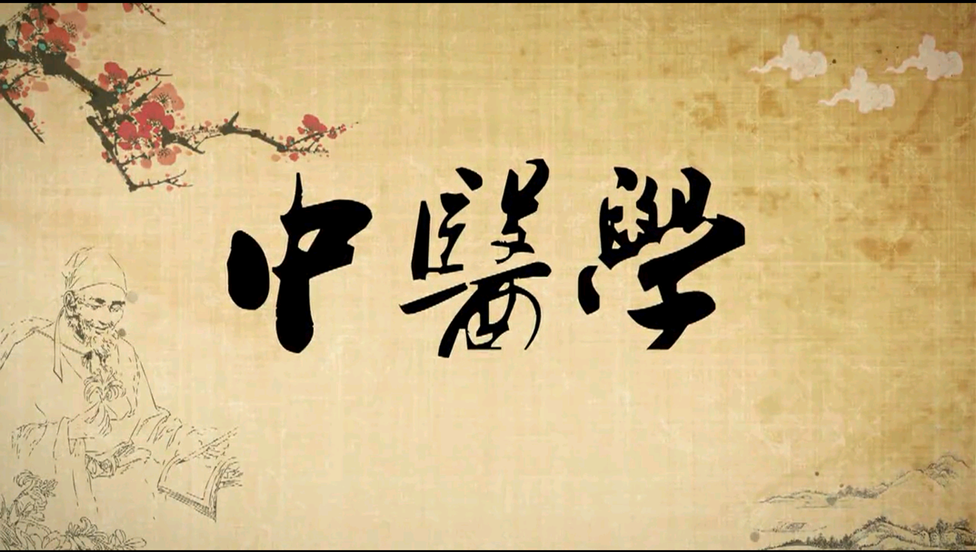 中醫學